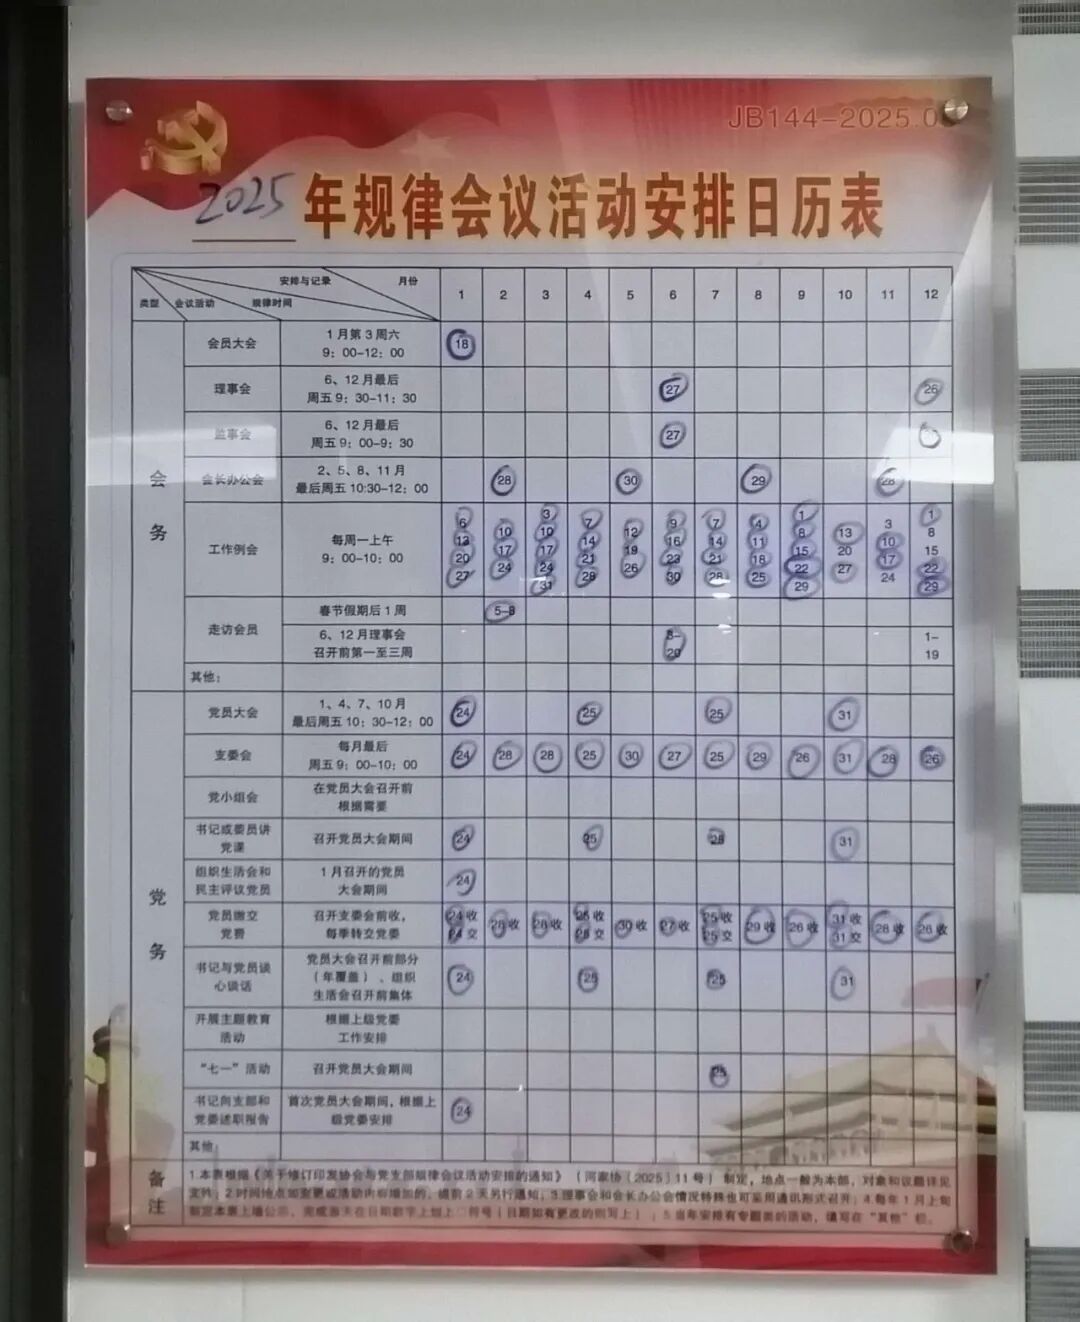 JB144-2025.0
2025 年规律会议活动安排日历表
安排与记录 月份
类型 会议活动 规律时间
1 2 3 4 5 6 7 8 9 10 11 12
会务
会员大会 1月第3周六 9：00-12：00 18
理事会 6、12月最后周五9：30-11：30 27 26
监事会 6、12月最后周五9：00-9：30 27
会长办公会 2、5、8、11月最后周五10:30-12：00 28 30 29 28
工作例会 每周一上午 9：00-10：00
6 13 20 27
10 17 24
3 10 17 24 31
7 14 21 28
12 19 26
9 16 23 30
7 14 21 28
4 11 18 25
1 8 15 22 29
13 20 27
3 10 17 24
1 8 15 22 29
走访会员 春节假期后1周 5-8
6、12月理事会召开前第一至三周 20 1-19
其他：
党务
党员大会 1、4、7、10月最后周五10：30-12：00 24 25 25 31
支委会 每月最后周五9：00-10：00 24 28 28 25 30 27 25 29 26 31 28 26
党小组会 在党员大会召开前根据需要
书记或委员讲党课 召开党员大会期间 24 25 25 31
组织生活会和民主评议党员 1月召开的党员大会期间 24
党员缴交党费 召开支委会前收，每季转交党委 24收 24交 28收 28收 25收 25交 30收 27收 25收 25交 29收 26收 31收 31交 28收 26收
书记与党员谈心谈话 党员大会召开前部分（年覆盖）、组织生活会召开前集体 24 25 25 31
开展主题教育活动 根据上级党委工作安排
“七一”活动 召开党员大会期间 25
书记向支部和党委述职报告 首次党员大会期间，根据上级党委安排 24
其他：
备注
1.本表根据《关于修订印发协会与党支部规律会议活动安排的通知》（河家协〔2025〕11号）制定，地点一般为本部，对象和议题详见
文件；2.时间地点如变更或活动内容增加的，提前2天另行通知；3.理事会和会长办公会情况特殊也可采用通讯形式召开；4.每年1月上旬
制定本表上墙公示，完成后在日期数字上划上○符号（日期如有更改的则写上）；5.当年安排有专题类的活动，填写在“其他”栏。